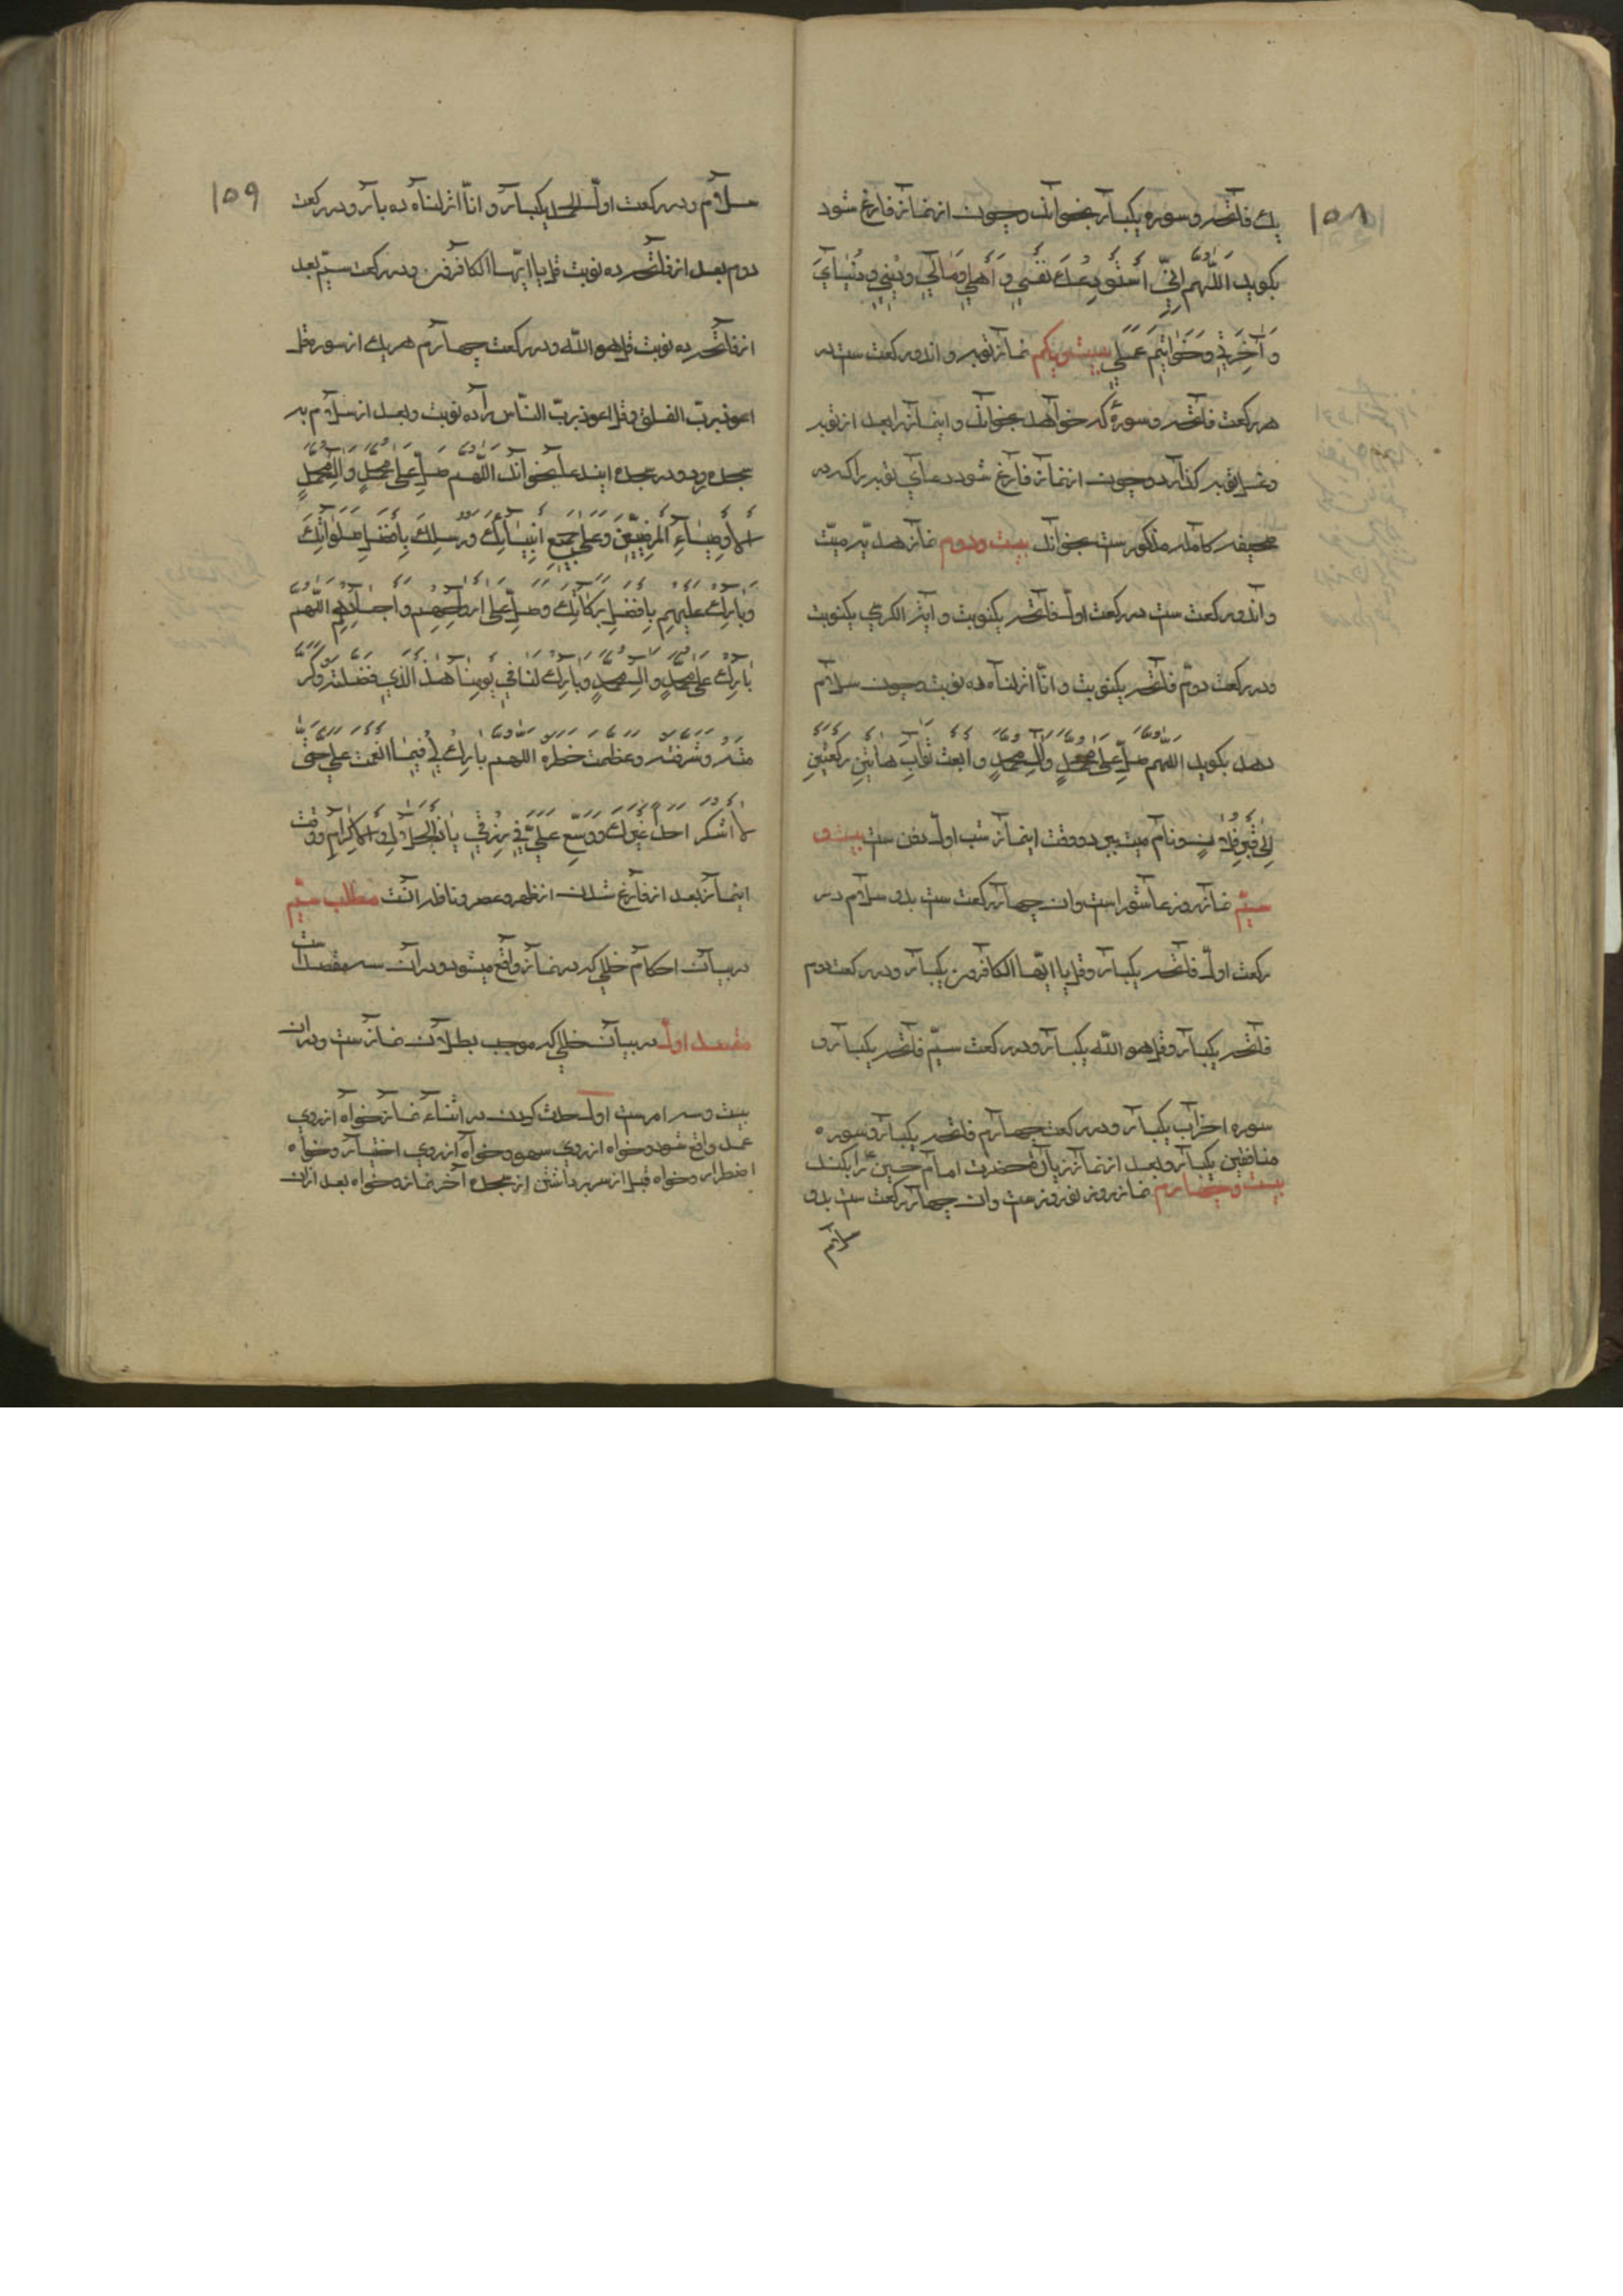 ۱۵۸
یک فاتحه و سوره یکبار بخواند و چون از نماز فارغ شود
بکوید اَللّهُم اِنّی اَستَودِعُکَ نَفْسی وَ اَهلی وَ مَالی و دینی و دُنیایَ
وَ آخِرَتی وَ خَوَاتیمَ عَمَلی بیست ویکم نماز توبه و آن دو رکعت ست در
هر رکعت فاتحه و سورهٔ که خواهد بخواند و این نماز را بعد از توبه
وغسل توبه کذارد و چون از نماز فارغ شود دعای توبه را که در
صحیفه کامله مذکور ست بخواند بیست ودوم نماز هدیّه میّت
و آن دو رکعت ست در رکعت اوّل فاتحه یکنوبت و آیة الکرسی یکنوبت
ودر رکعت دوّم فاتحه یکنوبت و انّا انزلناه ده نوبت وچون سلام
دهد بکوید اللّهُم صَلِّ عَلی مُحَمّدٍ وَآلِ مُحَمّدٍ و ابعث ثَوابَ هَاتَینِ رَکعَتَینِ
اِلی قَبرِ فُلانٍ و نام میت ببرد و وقت این نماز شب اوّل دفن ست بیست و
سیّم نماز روز عاشورا ست وان چهار رکعت ست بدو سلام در
رکعت اوّل فاتحه یکبار وقل یا ایّها الکافرون یکبار ودر رکعت دوم
فاتحه یکبار وقل هو اللّه یکبار ودر رکعت سیّم فاتحه یکبار و
سوره احزاب یکبار ودر رکعت چهارم فاتحه یکبار وسوره
منافقین یکبار وبعد از نماز زیارت حضرت امام حسین ع را بکند
بیست و چهارم نماز روز نوروز ست وان چهار رکعت ست بدو
سلام
۱۵۹
سلام ودر رکعت اوّل الحمد یکبار و انّا انزلناه ده بار ودر رکعت
دوم بعد از فاتحه ده نوبت قل یا ایّها الکافرون ودر رکعت سیّم بعد
از فاتحه ده نوبت قل هو اللّه ودر رکعت چهارم هر یک از سوره قل
اعوذ بربّ الفلق وقل اعوذ بربّ النّاس را ده نوبت وبعد از سلام به
سجده رود ودر سجده این دعا بخواند اللّهُم صَلِّ عَلی مُحَمّدٍ وَآلِ مُحَمّدٍ
الاَوصِیاءِ المَرضِیّینَ وَعَلی جَمیعِ اَنبِیَائِکَ وَرُسُلِکَ بِاَفضَلِ صَلَوَاتِکَ
وَبَارِک عَلَیهِم بِاَفضَلِ بَرَکَاتِکَ وصَلِّ عَلی اَروَاحِهِم و اَجسَادِهِم اللّهُم
بَارِک عَلی مُحَمّدٍ و آلِ مُحَمّدٍ وبَارِک لَنَا فی یَومِنَا هَذَا الّذی فَضّلتَهُ وکَرّ
متَهُ وشَرّفتَهُ وعَظّمتَ خَطَرَه اللهم بارِک لی فیما انعَمتَ عَلَیّ حَتّی
لا اشکر احداً غَیرَک ووَسّع عَلَیّ فی رِزقی یا ذَا الجَلالِ وَ الاِکرَامِ ووقت
این نماز بعد از فارغ شدن از ظهر وعصر ونافله انست مطلب سیّم
در بیان احکام خللی که در نماز واقع میشود ودر آن سه مقصد است
مقصد اوّل در بیان خللی که موجب بطلان نماز ست ودران
بیست وسه امر ست اول حدث کردن در اثناء نماز خواه از روی
عمد واقع شود وخواه از روی سهو وخواه از روی اختیار وخواه
اضطرار وخواه قبل از سر برداشتن از سجده آخر نماز وخواه بعد ازان